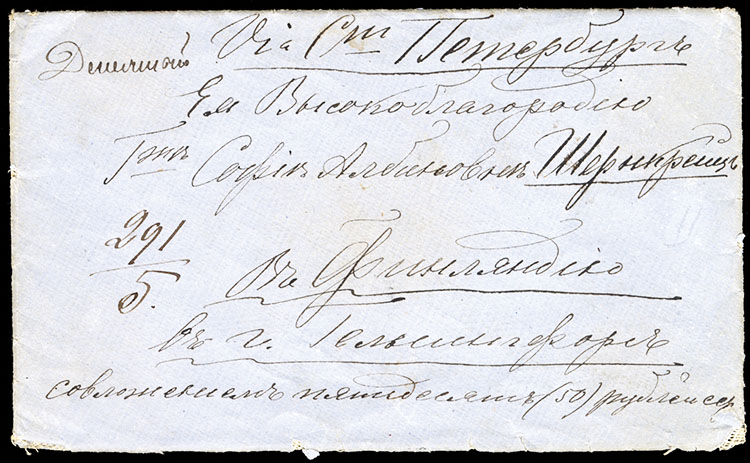 Via Спт Петербургъ
Денежный
Ея Высокоблагородію
Гжѣ Софіѣ Албиновнѣ Шернкрейцъ
291
5.
въ Финляндію
въ г. Гельсингфорсъ
совложеніемъ пятидесятъ (50) рублей сер